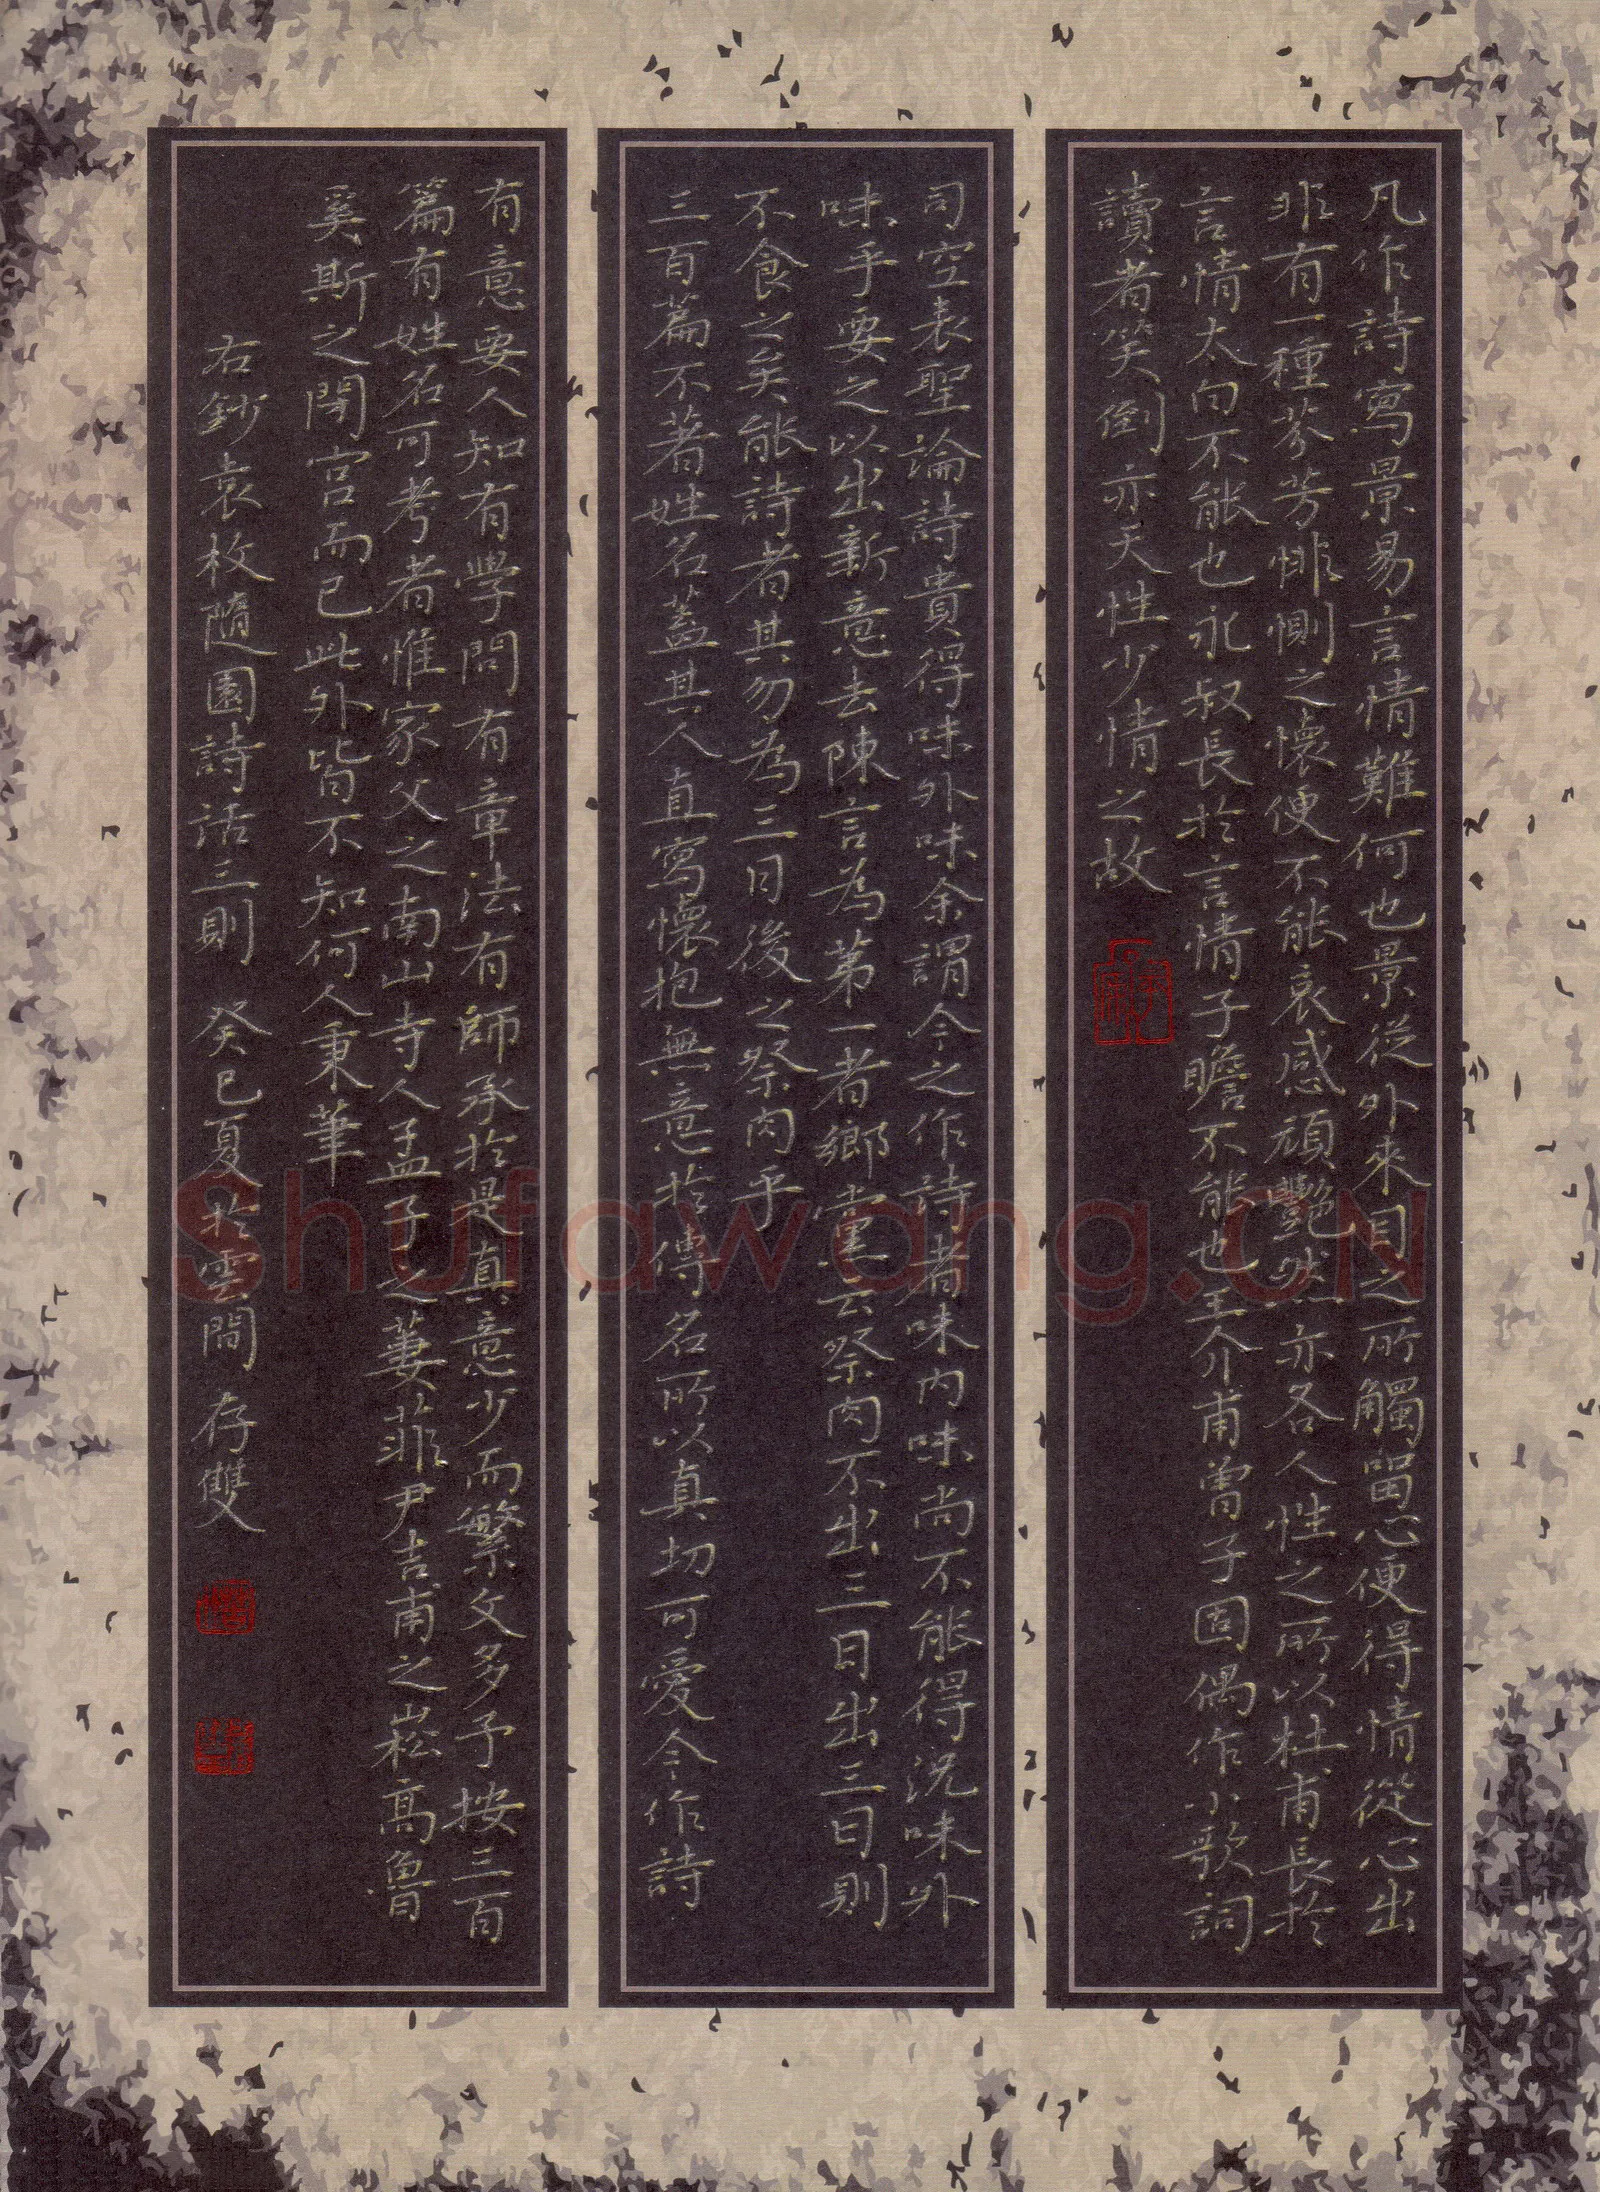 凡作詩寫景易言情難何也景從外來目之所觸留心便得情從心出
非有一種芬芳悱惻之懷便不能哀感頑艷然亦各人性之所以杜甫長於
言情太白不能也永叔長於言情子瞻不能也王介甫曾子固偶作小歌詞
讀者笑倒亦天性少情之故
司空表聖論詩貴得味外味余謂今之作詩者味内味尚不能得況味外
味乎要之以出新意去陳言為第一者鄉黨云祭肉不出三日出三日則
不食之矣能詩者其勿為三日後之祭肉乎
三百篇不著姓名蓋其人直寫懷抱無意於傳名所以真切可愛今作詩
有意要人知有學問有章法有師承於是真意少而繁文多予按三百
篇有姓名可考者惟家父之南山寺人孟子之萋菲尹吉甫之崧高魯
奚斯之閟宮而已此外皆不知何人秉筆
右鈔袁枚隨園詩話三則 癸巳夏於雲間 存雙
Shufawang.CN